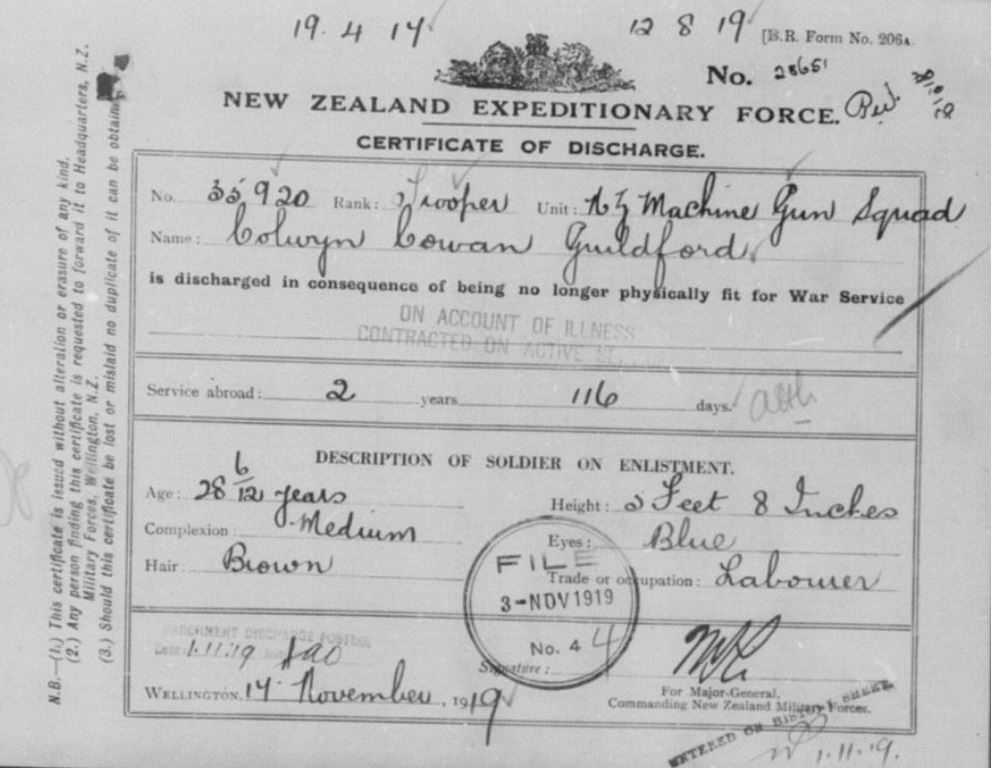 19. 4 17
12 8 19
[B.R. Form No. 206A.
No. 28651
NEW ZEALAND EXPEDITIONARY FORCE.
CERTIFICATE OF DISCHARGE.
No. 35920 Rank: Trooper Unit: NZ Machine Gun Squad
Name: Colwyn Cowan Guildford
is discharged in consequence of being no longer physically fit for War Service
ON ACCOUNT OF ILLNESS
CONTRACTED ON ACTIVE SERVICE
Service abroad: 2 years 116 days.
DESCRIPTION OF SOLDIER ON ENLISTMENT.
Age: 28 6/12 years Height: 5 Feet 8 Inches
Complexion: Medium Eyes: Blue
Hair: Brown Trade or occupation: Labourer
FILE
3-NOV 1919
No. 4 4
PARCHMENT DISCHARGE POSTED
Date 1.11.19
Signature:
WELLINGTON, 14 November, 1919
For Major-General,
Commanding New Zealand Military Forces.
ENTERED ON HISTORY SHEET
1.11.19.
N.B.—(1.) This certificate is issued without alteration or erasure of any kind.
(2.) Any person finding this certificate is requested to forward it to Headquarters, N.Z.
Military Forces, Wellington, N.Z.
(3.) Should this certificate be lost or mislaid no duplicate of it can be obtained